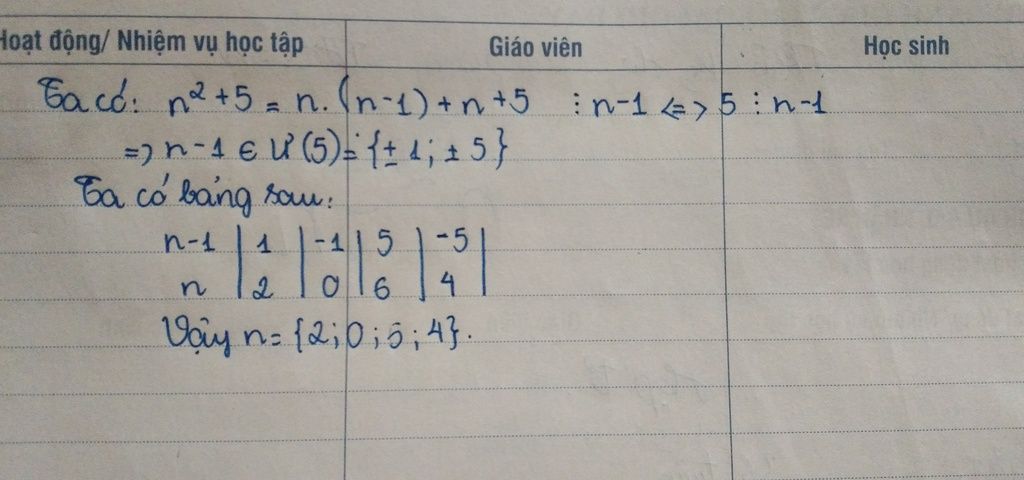 Hoạt động/ Nhiệm vụ học tập Giáo viên Học sinh
Ta có: n² + 5 = n. (n-1) + n + 5 ⋮ n-1 <=> 5 ⋮ n-1
=> n-1 ∈ Ư(5) = {± 1; ± 5}
Ta có bảng sau:
n-1 | 1 | -1 | 5 | -5 |
n | 2 | 0 | 6 | 4 |
Vậy n = {2; 0; 5; 4}.